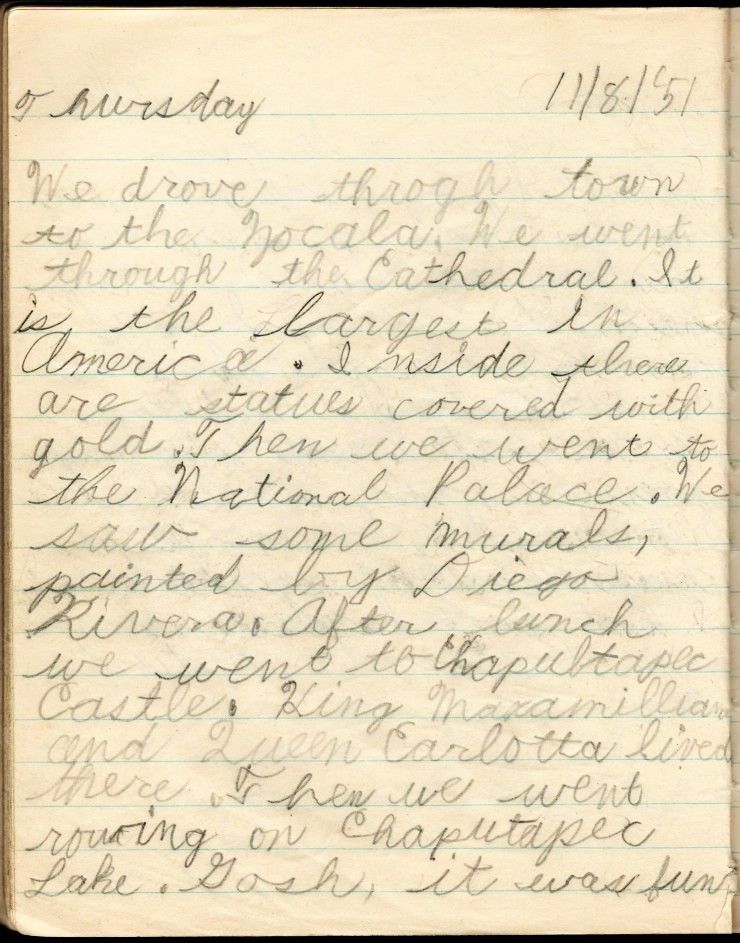 Thursday 11/8/'51
We drove throgh town
to the Zocala. We went
through the Cathedral. It
is the largest in
America. Inside there
are statues covered with
gold. Then we went to
the National Palace. We
saw some murals,
painted by Diego
Rivera. After lunch
we went to Chapultapec
Castle. King Maxamillian
and Queen Carlotta lived
there. Then we went
rowing on Chaputapec
Lake. Gosh, it was fun.